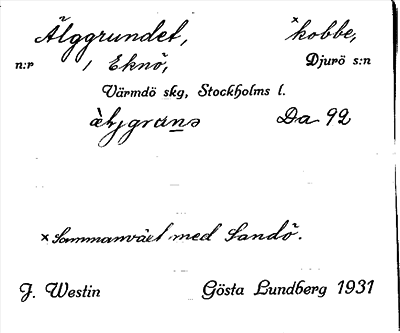 Älggrundet, ×kobbe,
n:r / Eknö, Djurö s:n
Värmdö skg, Stockholms l.
Da 92
× Sammanväxt med Sandö.
J. Westin Gösta Lundberg 1931